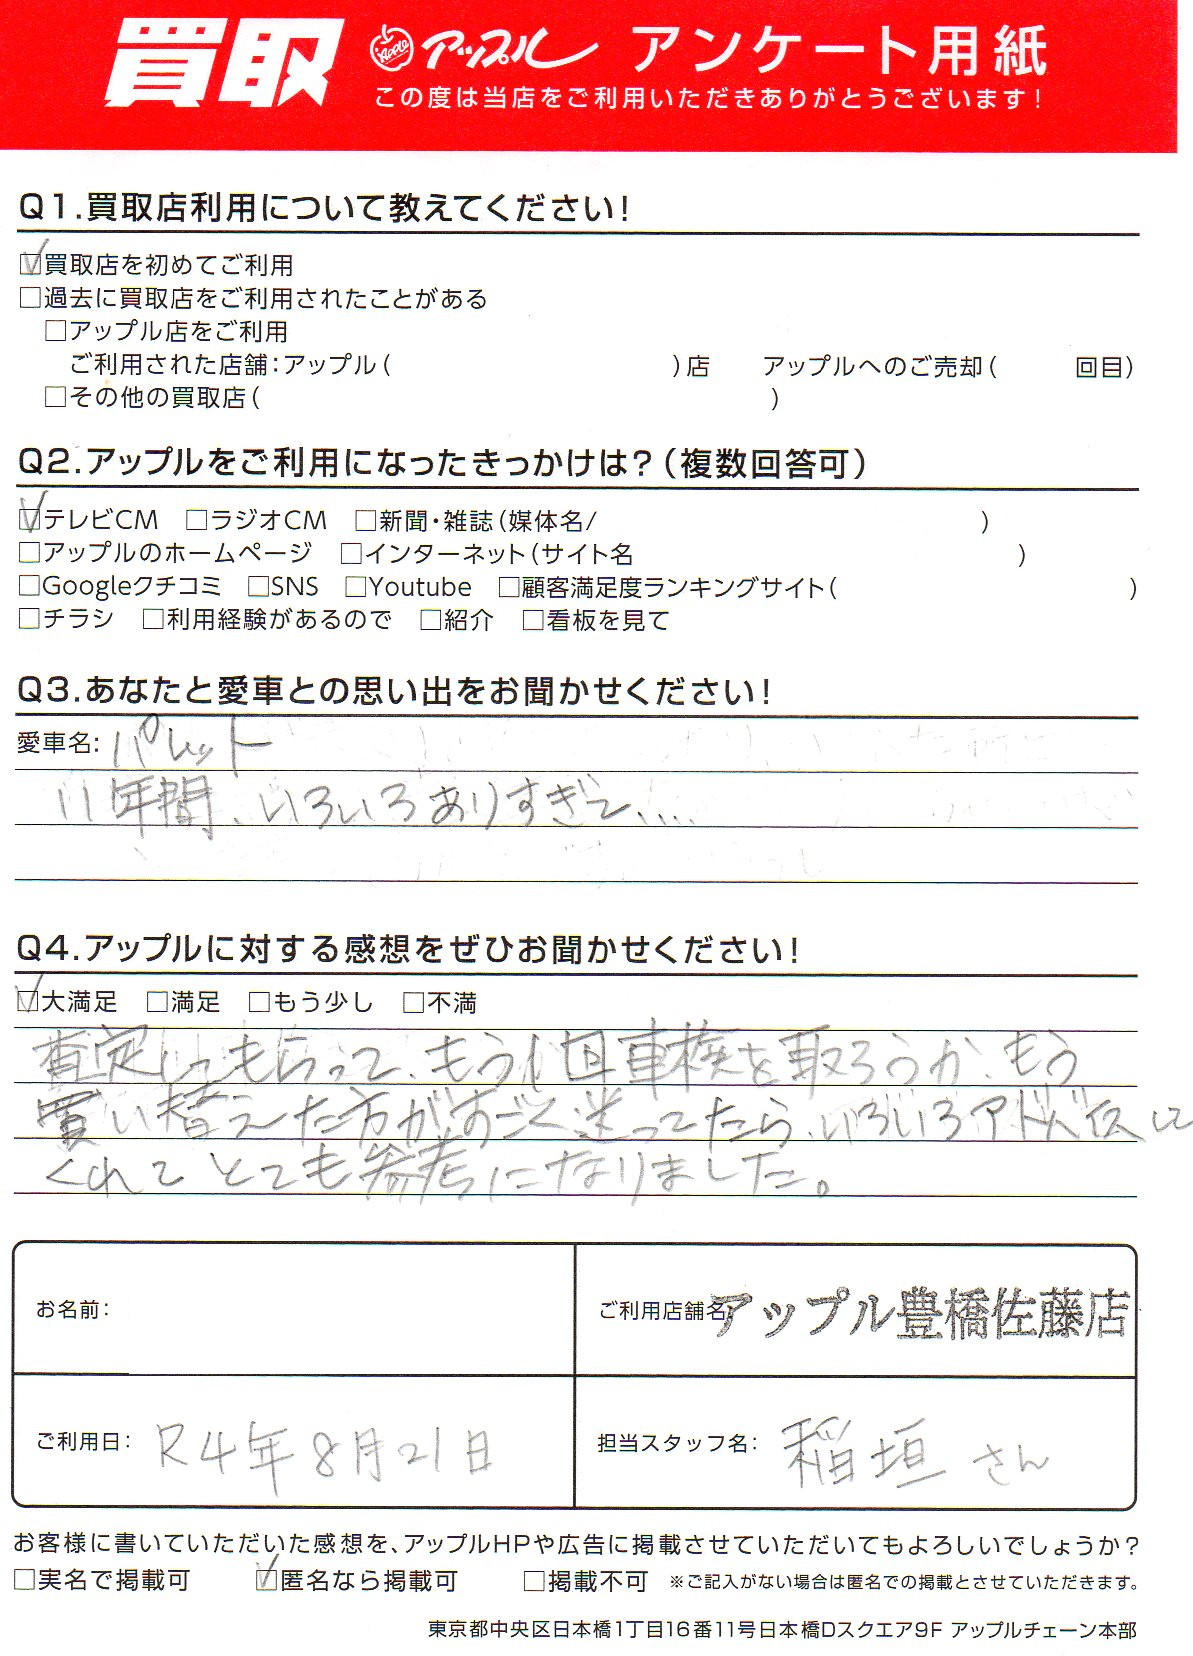 買取 Apple アップル アンケート用紙
この度は当店をご利用いただきありがとうございます!
Q1.買取店利用について教えてください!
☑買取店を初めてご利用
□過去に買取店をご利用されたことがある
□アップル店をご利用
ご利用された店舗:アップル( )店 アップルへのご売却( 回目)
□その他の買取店( )
Q2.アップルをご利用になったきっかけは?(複数回答可)
☑テレビCM □ラジオCM □新聞・雑誌(媒体名/ )
□アップルのホームページ □インターネット(サイト名 )
□Googleクチコミ □SNS □Youtube □顧客満足度ランキングサイト( )
□チラシ □利用経験があるので □紹介 □看板を見て
Q3.あなたと愛車との思い出をお聞かせください!
愛車名: パレット
11年間、いろいろありすぎて、...
Q4.アップルに対する感想をぜひお聞かせください!
☑大満足 □満足 □もう少し □不満
査定してもらって、もう1回車検を取ろうか、もう
買い替えた方がすごく迷ってたら、いろいろアドバイスして
くれてとても参考になりました。
お名前:
ご利用店舗名 アップル豊橋佐藤店
ご利用日: R4年8月21日
担当スタッフ名: 稲垣さん
お客様に書いていただいた感想を、アップルHPや広告に掲載させていただいてもよろしいでしょうか?
□実名で掲載可 ☑匿名なら掲載可 □掲載不可 ※ご記入がない場合は匿名での掲載とさせていただきます。
東京都中央区日本橋1丁目16番11号日本橋Dスクエア9F アップルチェーン本部